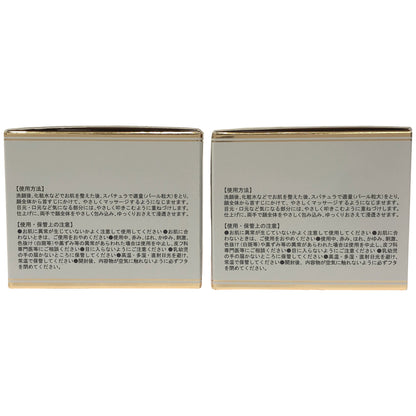 【使用方法】
洗顔後、化粧水などでお肌を整えた後、スパチュラで適量（パール粒大）をとり、
顔全体から首すじにかけて、やさしくマッサージするようになじませます。
目元・口元など気になる部分には、やさしく叩きこむように重ねづけします。
仕上げに、両手で顔全体をやさしく包み込み、ゆっくりおさえて浸透させます。
【使用・保管上の注意】
●お肌に異常が生じていないかよく注意して使用してください●お肌に合
わないときは、ご使用をおやめください●使用中、赤み、はれ、かゆみ、刺激、
色抜け（白斑等）や黒ずみ等の異常があらわれた場合は使用を中止し、皮フ科
専門医等にご相談ください●目に入らないようにご注意ください●乳幼児
の手の届かないところに保管してください●高温・多湿・直射日光を避け、
常温で保管してください●開封後、内容物が空気に触れないように必ずフタ
を閉めてください。
【使用方法】
洗顔後、化粧水などでお肌を整えた後、スパチュラで適量（パール粒大）をとり、
顔全体から首すじにかけて、やさしくマッサージするようになじませます。
目元・口元など気になる部分には、やさしく叩きこむように重ねづけします。
仕上げに、両手で顔全体をやさしく包み込み、ゆっくりおさえて浸透させます。
【使用・保管上の注意】
●お肌に異常が生じていないかよく注意して使用してください●お肌に合
わないときは、ご使用をおやめください●使用中、赤み、はれ、かゆみ、刺激、
色抜け（白斑等）や黒ずみ等の異常があらわれた場合は使用を中止し、皮フ科
専門医等にご相談ください●目に入らないようにご注意ください●乳幼児
の手の届かないところに保管してください●高温・多湿・直射日光を避け、
常温で保管してください●開封後、内容物が空気に触れないように必ずフタ
を閉めてください。